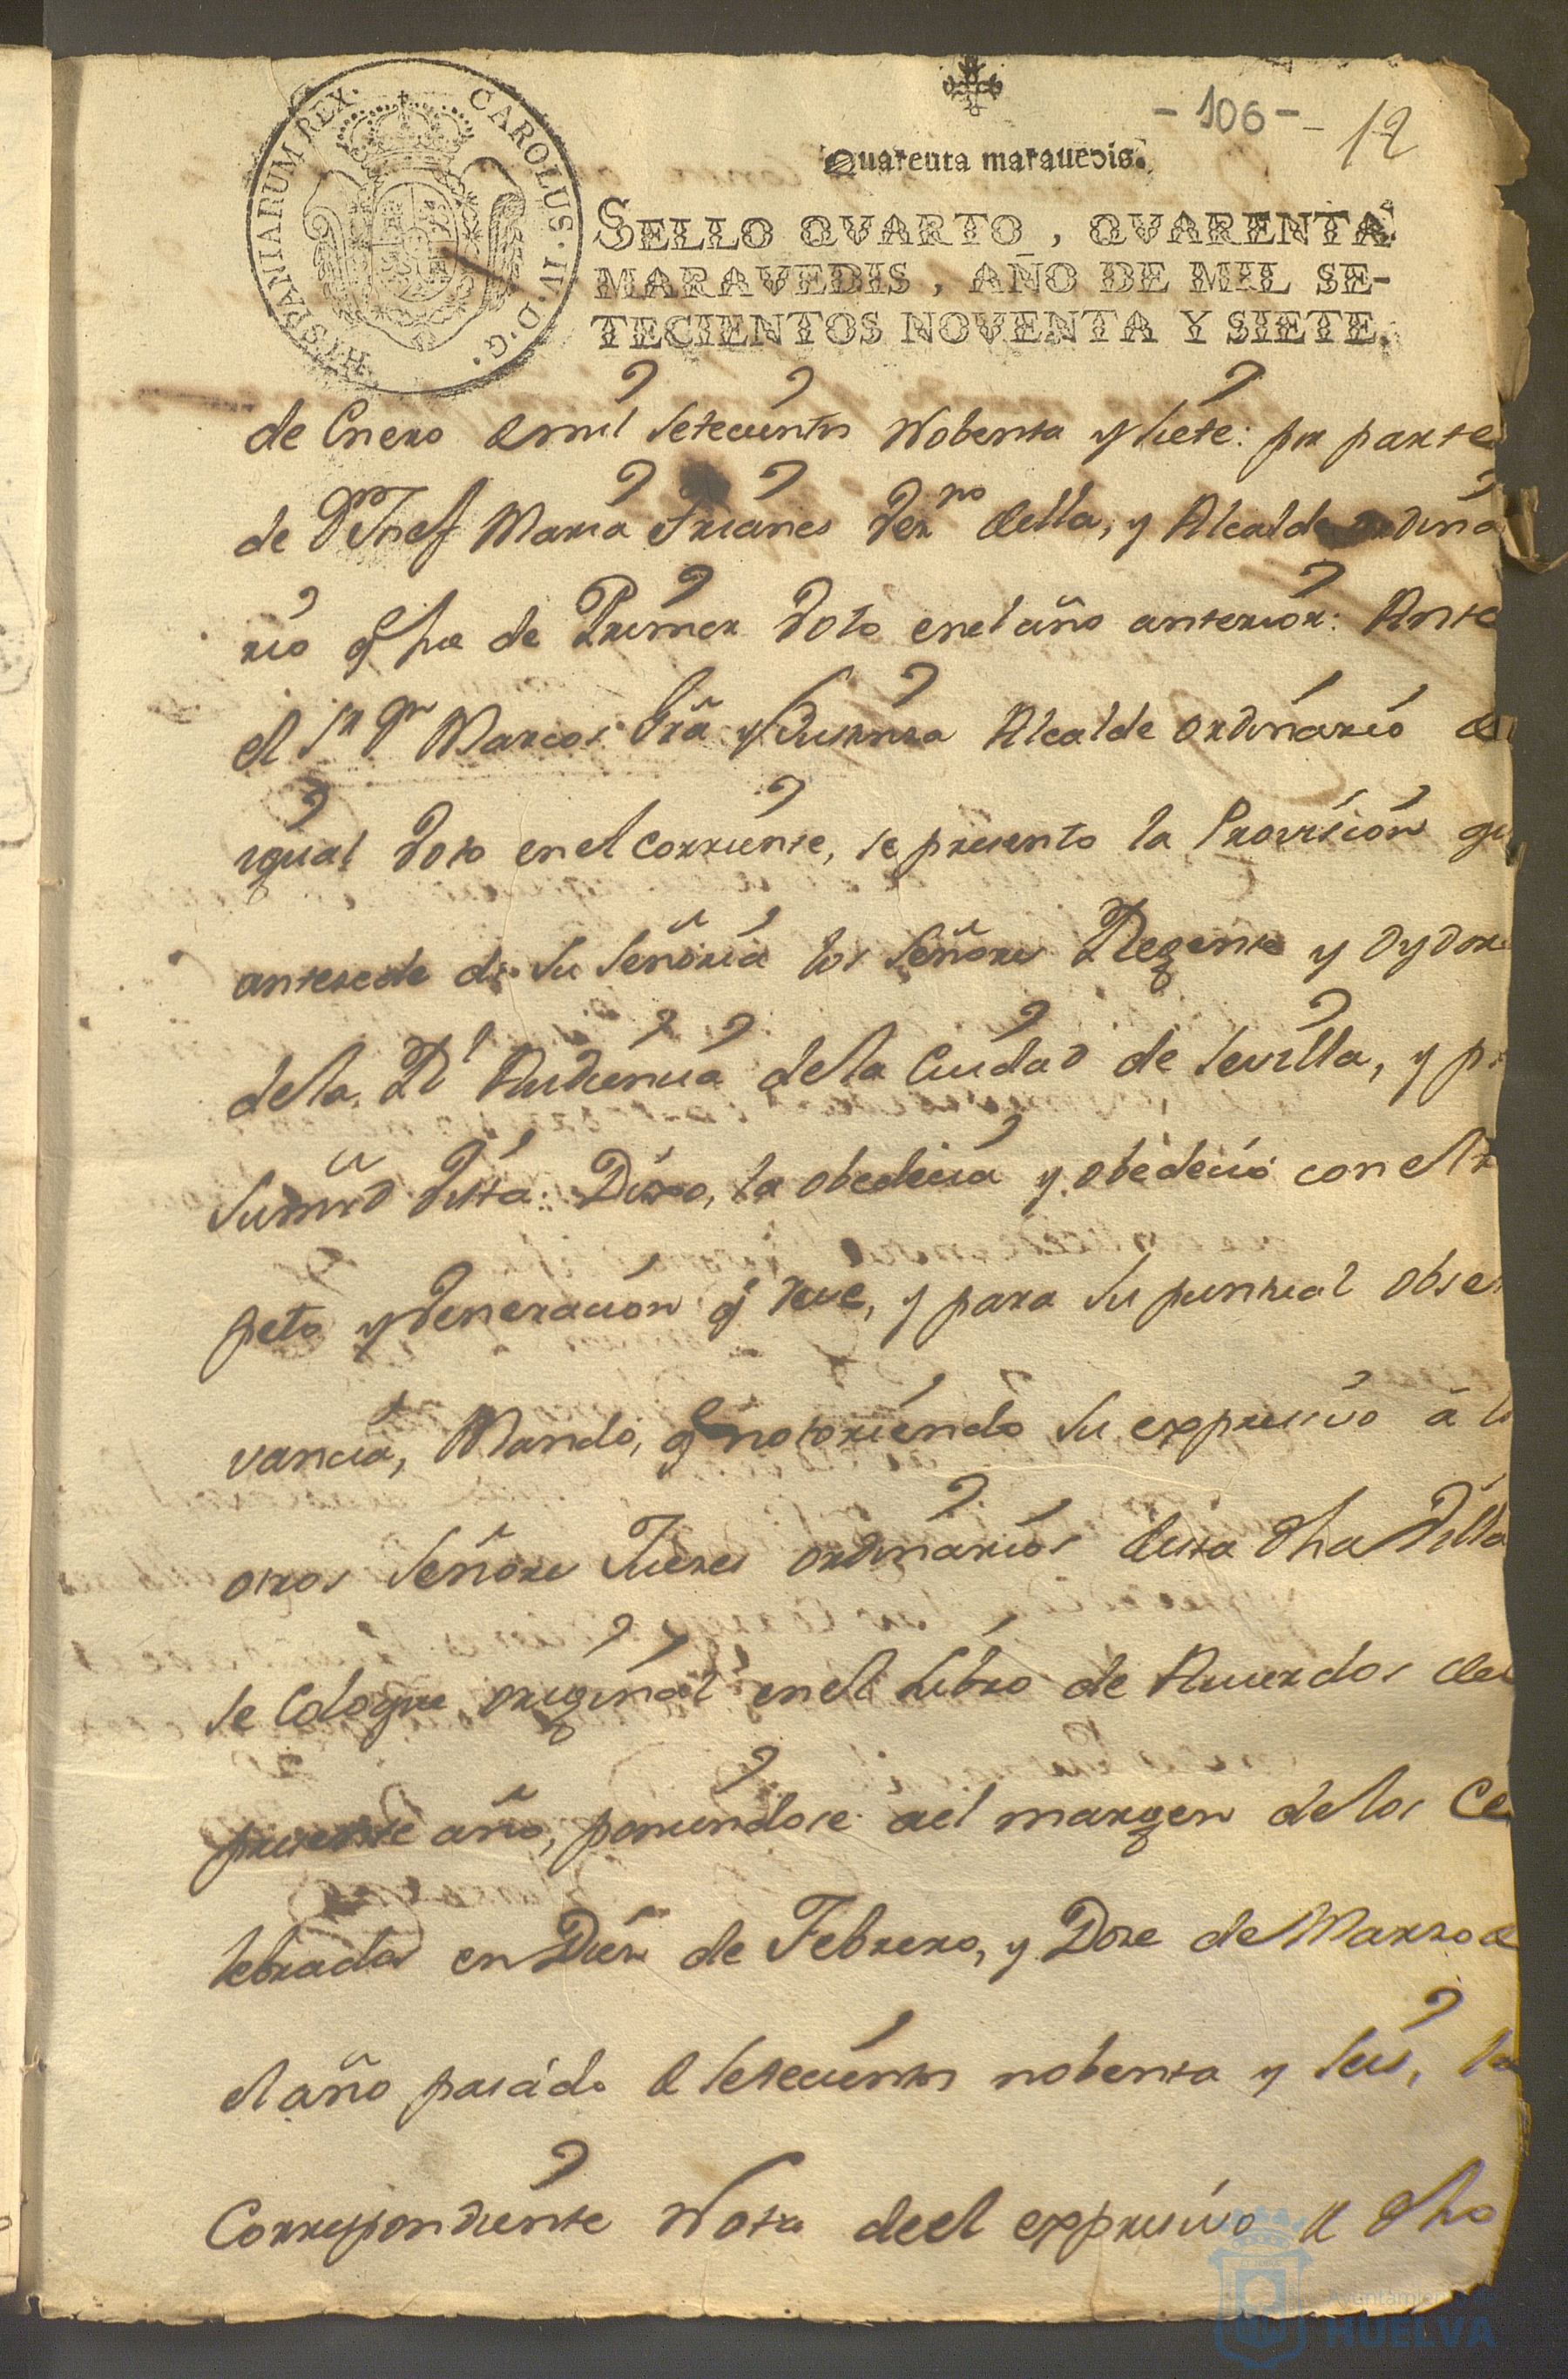 - 106 - - 12
Quarenta maravedis.
CAROLUS · IV · D · G · HISPANIARUM REX ·
SELLO QVARTO , QVARENTA
MARAVEDIS , AÑO DE MIL SE-
TECIENTOS NOVENTA Y SIETE.
de Enero de mil setecientos Nobenta y siete: por parte
de Dn Josef Maria Trianes Vezno della, y Alcalde ordina
rio q fue de Primer Voto en el año anterior: Ante
el Sr Dn Marcos Alcalde ordinario de
igual Voto en el corriente, se presento la Provision que
antesede de su señoria los señores Regente y Oydores
de la Rl Audiencia de la Ciudad de Sevilla, y por
su mrd Vista: Dixo, la obedecia y obedeció con el res
peto y Veneracion q deve, y para su puntual obser
vancia, Mandó, q notoriendo su expresivo á los
otros señores Juezes ordinarios desta dha Villa
se coloque original en el Libro de Acuerdos del
presente año, poniendose al margen de los Ce
lebrados en Diez de Febrero, y Doze de Marzo de
el año pasádo de setecientos nobenta y seis, la
Correspondiente Nota deel expresivo de dho
Ayuntamiento de
HUELVA